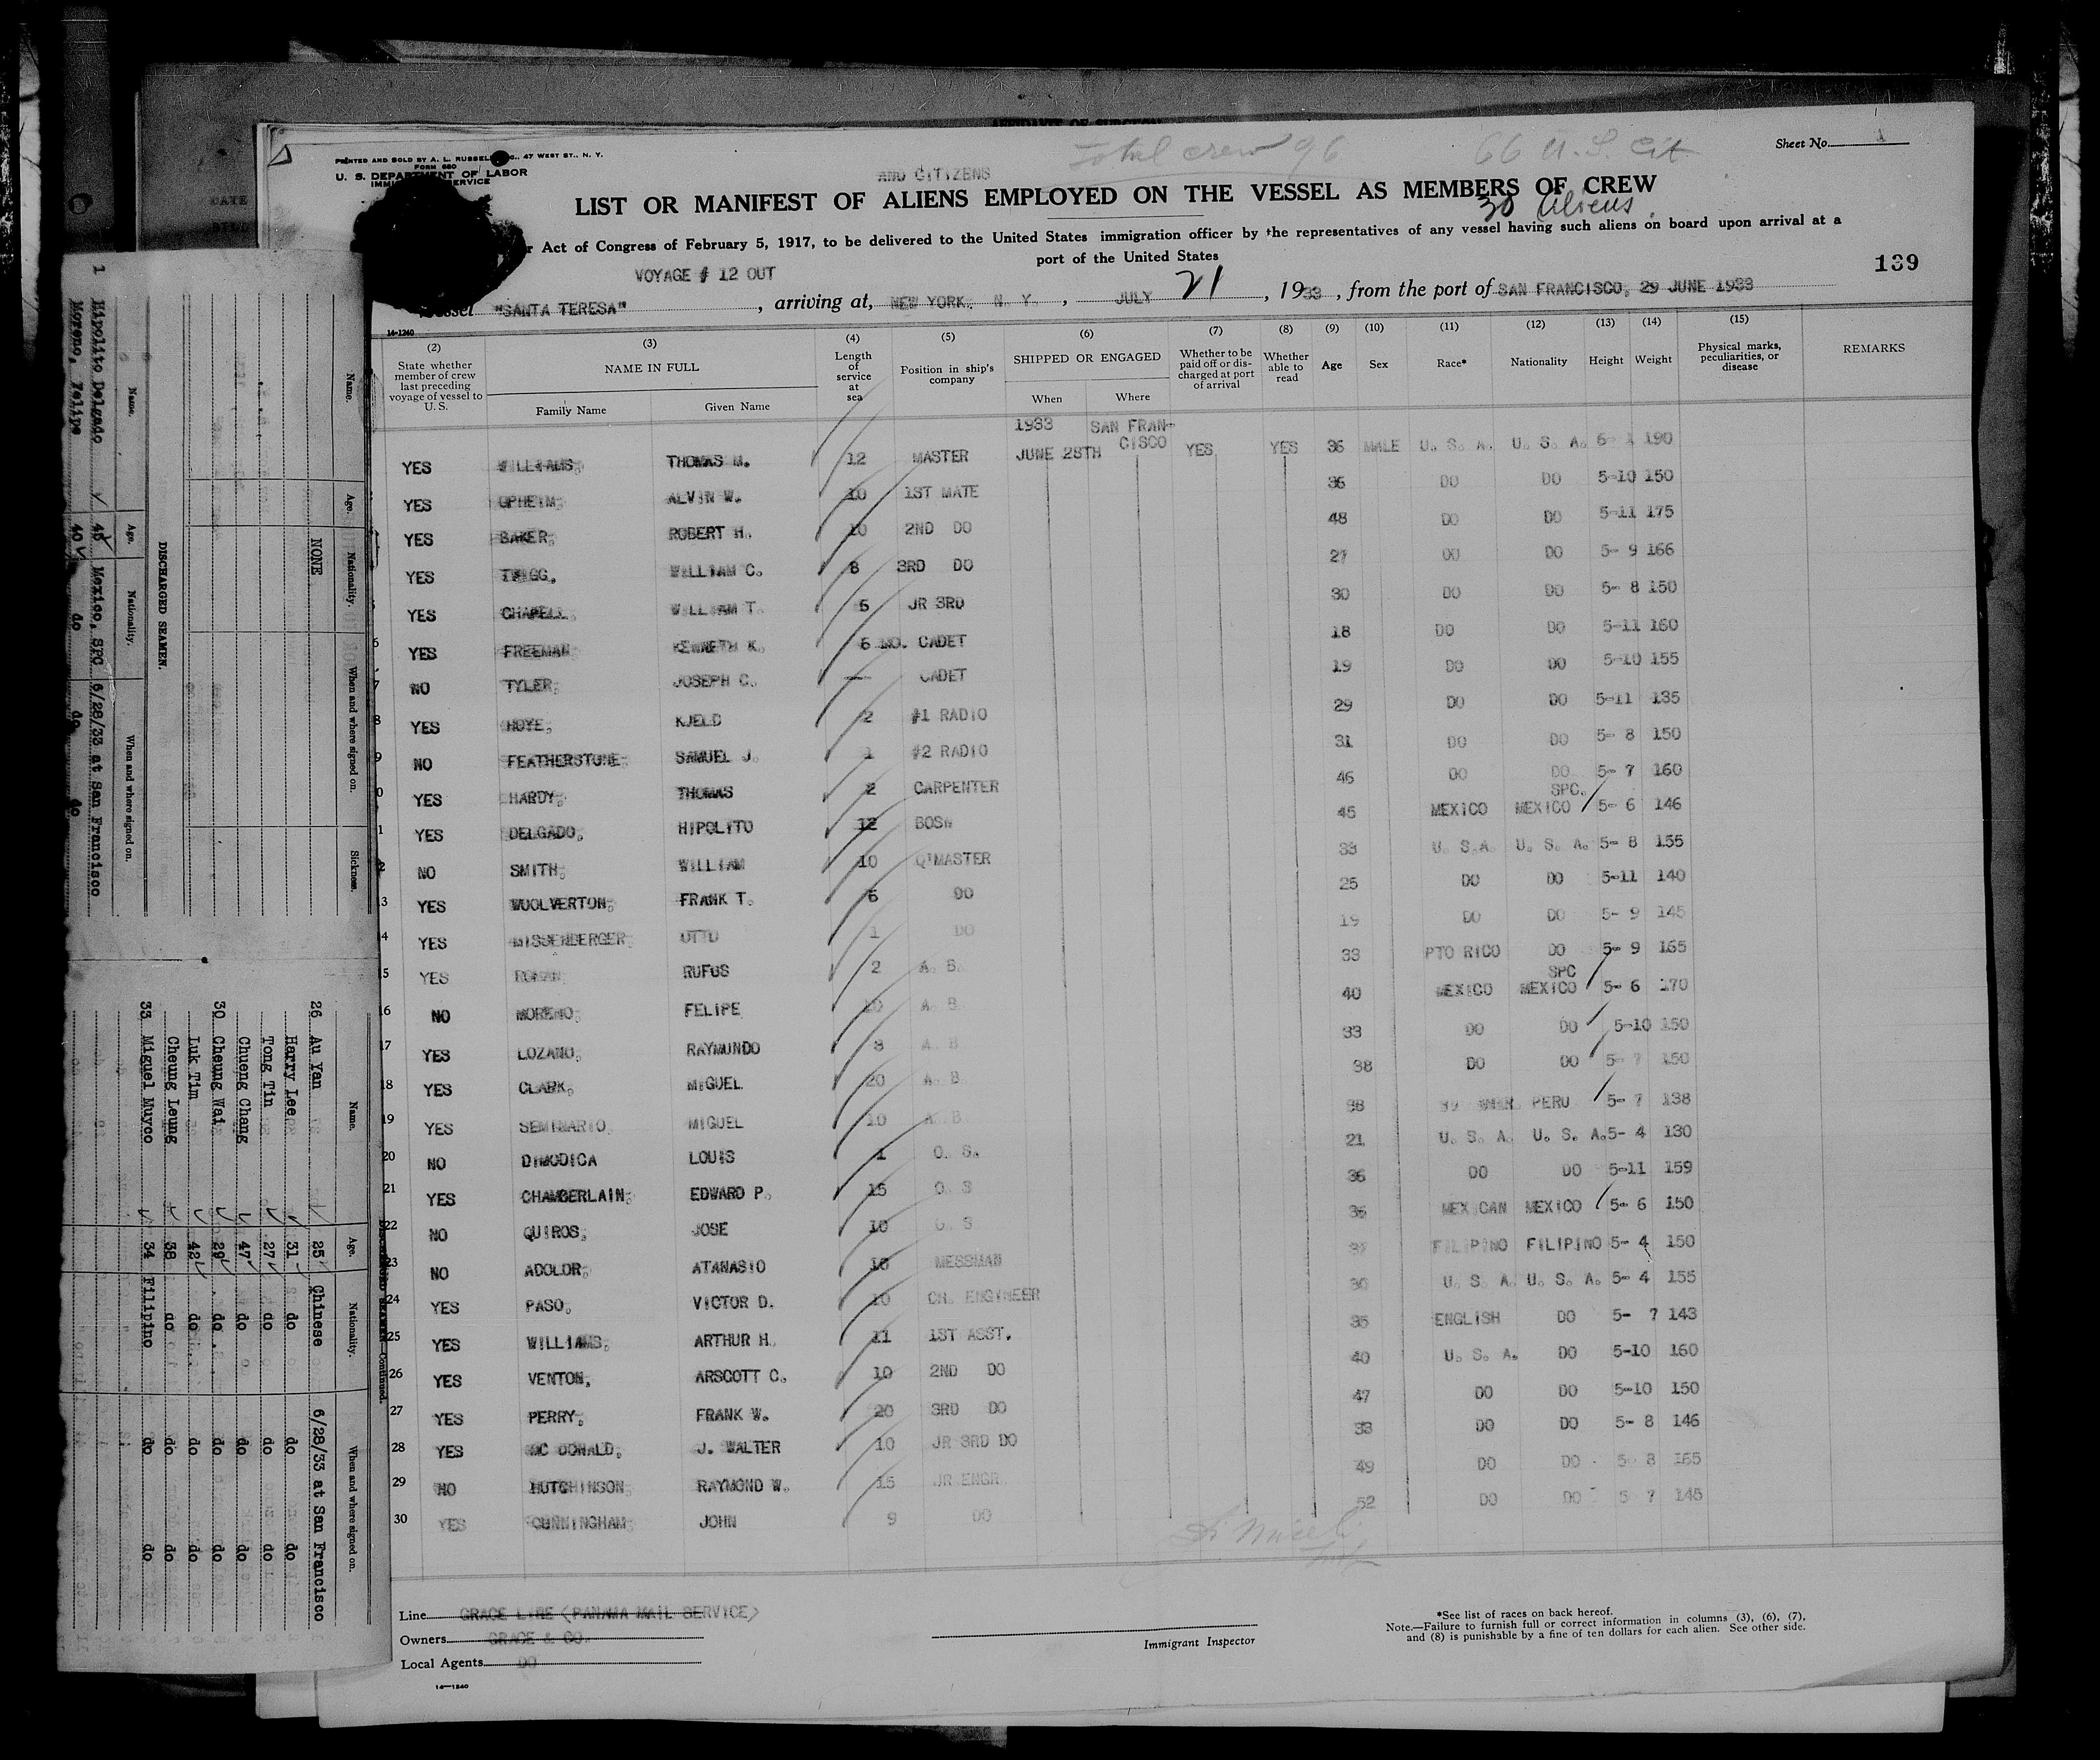 AFFIDAVIT OF SURGEON
PRINTED AND SOLD BY A. L. RUSSELL, 47 WEST ST., N. Y.
FORM 680
U. S. DEPARTMENT OF LABOR
IMMIGRATION SERVICE
Total crew 96
66 U. S. Cit
30 Aliens
Sheet No. 1
AND CITIZENS
LIST OR MANIFEST OF ALIENS EMPLOYED ON THE VESSEL AS MEMBERS OF CREW
Act of Congress of February 5, 1917, to be delivered to the United States immigration officer by the representatives of any vessel having such aliens on board upon arrival at a
port of the United States
139
VOYAGE # 12 OUT
"SANTA TERESA", arriving at, NEW YORK, N. Y., JULY 21, 1933, from the port of SAN FRANCISCO, 29 JUNE 1933
14-1240
(2) (3) (4) (5) (6) (7) (8) (9) (10) (11) (12) (13) (14) (15)
State whether member of crew last preceding voyage of vessel to U. S. | NAME IN FULL | Length of service at sea | Position in ship's company | SHIPPED OR ENGAGED | Whether to be paid off or discharged at port of arrival | Whether able to read | Age | Sex | Race* | Nationality | Height | Weight | Physical marks, peculiarities, or disease | REMARKS
Family Name | Given Name | When | Where
1933 SAN FRANCISCO
YES WILLIAMS, THOMAS M. 12 MASTER JUNE 28TH YES YES 36 MALE U. S. A. U. S. A. 6- 1 190
YES OPHEIM, ALVIN W. 10 1ST MATE 36 DO DO 5-10 150
YES BAKER, ROBERT H. 10 2ND DO 48 DO DO 5-11 175
YES TWIGG, WILLIAM C. 8 3RD DO 27 DO DO 5- 9 166
YES CHAPELL, WILLIAM T. 5 JR 3RD 30 DO DO 5- 8 150
6 YES FREEMAN KENNETH K. 6 MO. CADET 18 DO DO 5-11 160
7 NO TYLER, JOSEPH C. — CADET 19 DO DO 5-10 155
8 YES HOYE, KJELD 2 #1 RADIO 29 DO DO 5-11 135
9 NO FEATHERSTONE SAMUEL J. 1 #2 RADIO 31 DO DO 5- 8 150
0 YES HARDY, THOMAS 2 CARPENTER 46 DO DO 5- 7 160
1 YES DELGADO, HIPOLITO 12 BOSN 45 MEXICO SPC. MEXICO 5- 6 146
2 NO SMITH, WILLIAM 10 Q'MASTER 33 U. S.A. U. S. A. 5- 8 155
3 YES WOOLVERTON, FRANK T. 5 DO 25 DO DO 5-11 140
4 YES MISSENBERGER OTTO 1 DO 19 DO DO 5- 9 145
5 YES ROMAN RUFUS 2 A. B. 33 PTO RICO DO 5- 9 165
16 NO MORENO, FELIPE 10 A. B. 40 MEXICO SPC MEXICO 5- 6 170
17 YES LOZANO, RAYMUNDO 8 A. B 33 DO DO 5-10 150
18 YES CLARK, MIGUEL 20 A. B. 38 DO DO 5- 7 150
19 YES SEMINARIO, MIGUEL 10 A. B. 38 AMER. PERU 5- 7 138
20 NO DIMODICA LOUIS 1 O. S. 21 U. S. A. U. S. A. 5- 4 130
21 YES CHAMBERLAIN, EDWARD P. 15 O. S 36 DO DO 5-11 159
22 NO QUIROS, JOSE 10 O. S. 36 MEXICAN MEXICO 5- 6 150
23 NO ADOLOR, ATANASIO 10 MESSMAN FILIPINO FILIPINO 5- 4 150
24 YES PASO, VICTOR D. 10 CH. ENGINEER U. S. A. U. S. A. 5- 4 155
25 YES WILLIAMS, ARTHUR H. 11 1ST ASST. 35 ENGLISH DO 5- 7 143
26 YES VENTON, ARSCOTT C. 10 2ND DO 40 U. S. A. DO 5-10 160
27 YES PERRY, FRANK W. 20 3RD DO 47 DO DO 5-10 150
28 YES MC DONALD, J. WALTER 10 JR 3RD DO 33 DO DO 5- 8 146
29 NO HUTCHINSON, RAYMOND W. 15 JR ENGR. 49 DO DO 5- 8 165
30 YES CUNNINGHAM, JOHN 9 DO 52 DO DO 5 7 145
Line GRACE LINE (PANAMA MAIL SERVICE)
Owners GRACE & CO.
Local Agents DO
14—1240
Immigrant Inspector
*See list of races on back hereof.
Note.—Failure to furnish full or correct information in columns (3), (6), (7),
and (8) is punishable by a fine of ten dollars for each alien. See other side.
Name. Age. Nationality. When and where signed on. Sickness.
NONE
DISCHARGED SEAMEN.
Name. Age. Nationality. When and where signed on.
1 Hipolito Delgado 45 Mexico, SPC 6/28/33 at San Francisco
Moreno, Felipe 40 do do do
DISCHARGED SEAMEN—Continued.
Name. Age. Nationality. When and where signed on.
26 Au Yan 25 Chinese 6/28/33 at San Francisco
Harry Lee 31 do do do
Tong Tin 27 do do do
Chueng Chang 47 do do do
30 Cheung Wai 29 do do do
Luk Tim 42 do do do
Cheung Leung 38 do do do
33 Miguel Muyco 34 Filipino do do